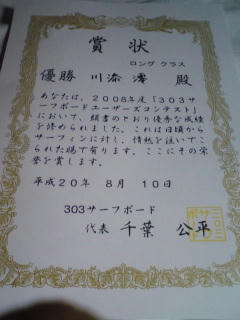 賞状
ロング クラス
優勝 川添 澪 殿
あなたは、2008年度「303サ
ーフボードユーザーズコンテスト」
において、頭書のとおり優秀な成績
を修められました。これは日頃から
サーフィンに対し、情熱を注いでこ
られた賜で有ります。ここにその栄
誉を賞します。
平成20年 8月 10日
303サーフボード
代表 千葉 公平